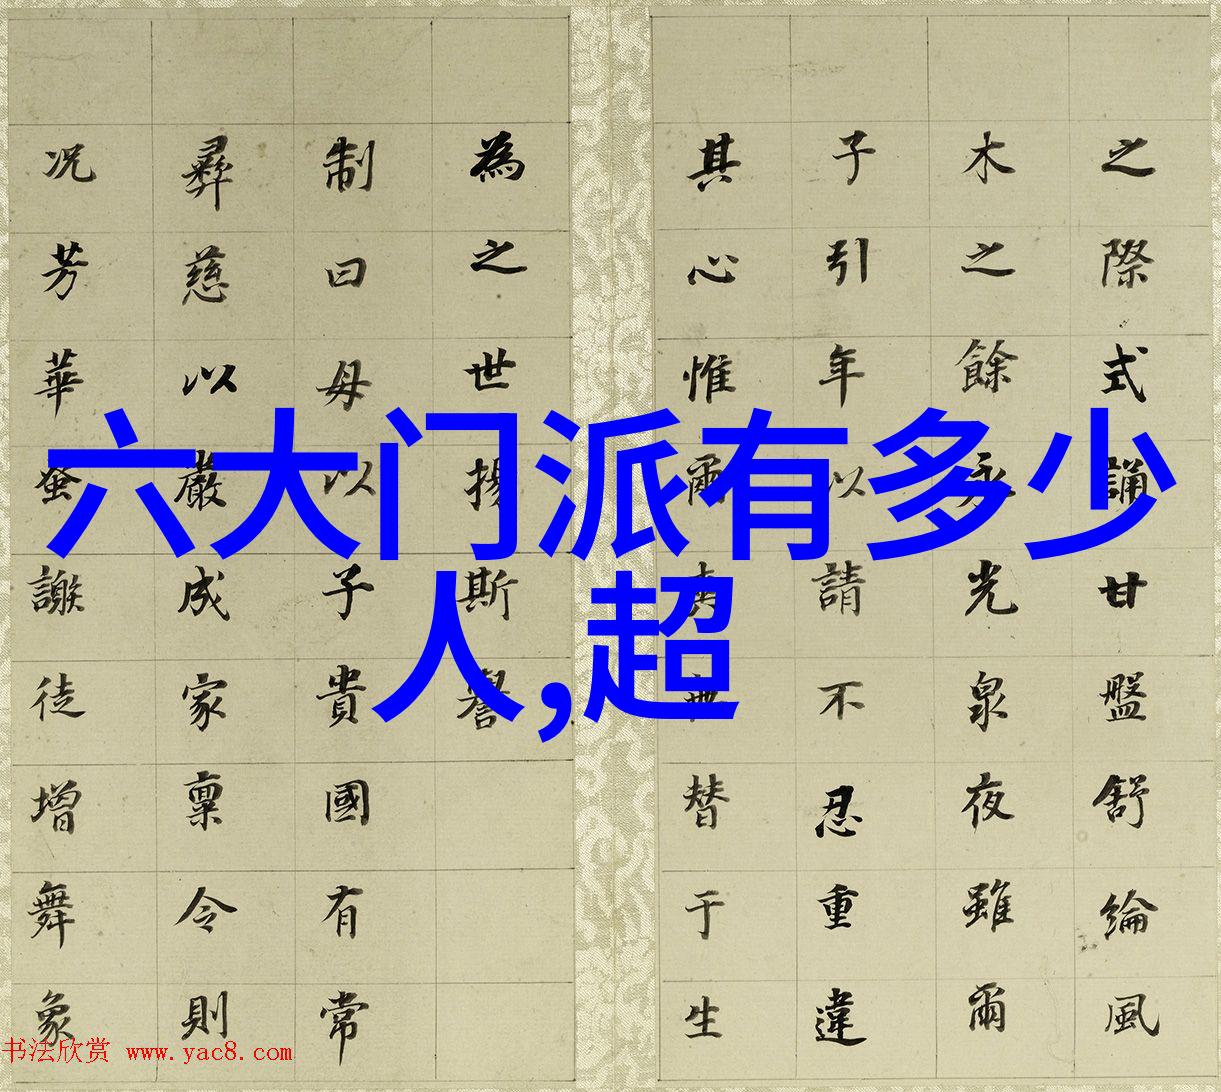 六大门派有多少
人,超
之際式誦甘盤舒綸風
木之餘永光泉夜雖爾
子引年以請不忍重違
其心惟爾替于生
為之世揚斯譽
制曰母以子貴國有常
彝慈以嚴成家稟令則
況芳華蚤謝徒增舞象
书法欣赏 www.yac8.com